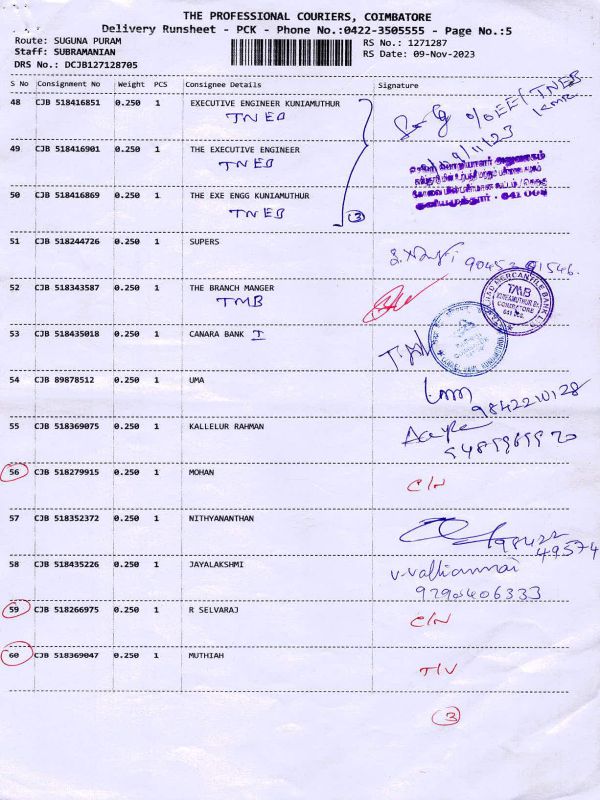 THE PROFESSIONAL COURIERS, COIMBATORE
Delivery Runsheet - PCK - Phone No.:0422-3505555 - Page No.:5
Route: SUGUNA PURAM RS No.: 1271287
Staff: SUBRAMANIAN RS Date: 09-Nov-2023
DRS No.: DCJB127128705
S No Consignment No Weight PCS Consignee Details Signature
48 CJB 518416851 0.250 1 EXECUTIVE ENGINEER KUNIAMUTHUR
TNEB
49 CJB 518416901 0.250 1 THE EXECUTIVE ENGINEER
TNEB
50 CJB 518416869 0.250 1 THE EXE ENGG KUNIAMUTHUR
TNEB
3
51 CJB 518244726 0.250 1 SUPERS
52 CJB 518343587 0.250 1 THE BRANCH MANGER
TMB
53 CJB 518435018 0.250 1 CANARA BANK I
54 CJB 89878512 0.250 1 UMA
9842210128
55 CJB 518369075 0.250 1 KALLELUR RAHMAN
56 CJB 518279915 0.250 1 MOHAN C/N
57 CJB 518352372 0.250 1 NITHYANANTHAN
98422
49574
58 CJB 518435226 0.250 1 JAYALAKSHMI V.Valliammai
59 CJB 518266975 0.250 1 R SELVARAJ C/N
60 CJB 518369047 0.250 1 MUTHIAH T/V
3